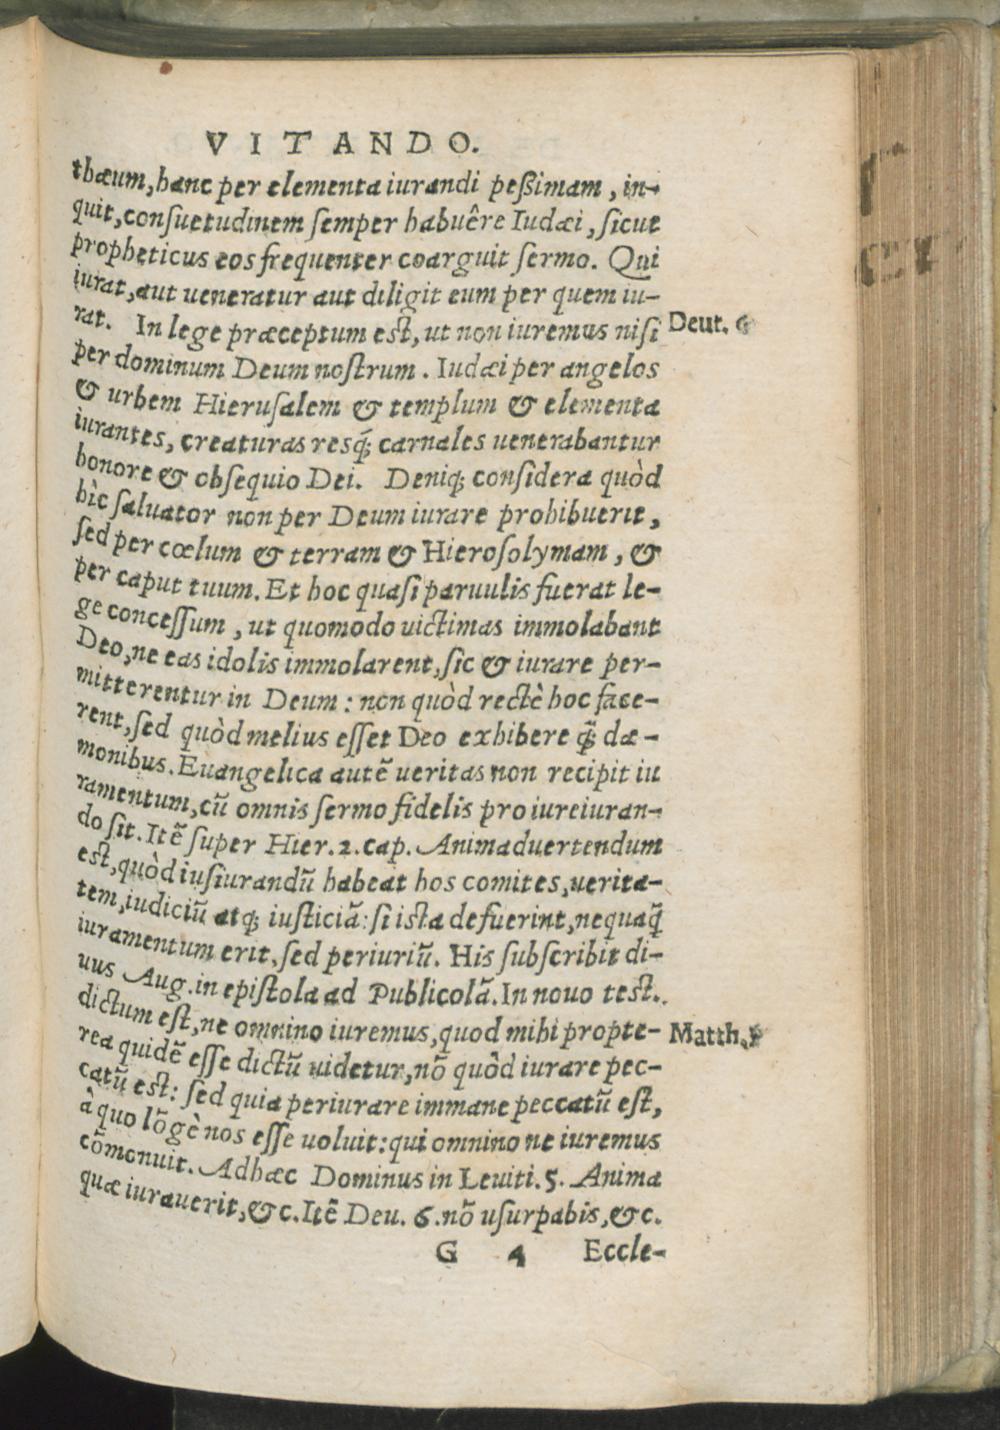 VITANDO.
thæum, hanc per elementa iurandi peßimam, in-
quit, consuetudinem semper habuêre Iudæi, sicut
propheticus eos frequenter coarguit sermo. Qui
iurat, aut ueneratur aut diligit eum per quem iu-
rat. In lege præceptum est, ut non iuremus nisi Deut. 6
per dominum Deum nostrum. Iudæi per angelos
& urbem Hierusalem & templum & elementa
iurantes, creaturas resq́; carnales uenerabantur
honore & obsequio Dei. Deniq; considera quòd
hìc saluator non per Deum iurare prohibuerit,
sed per cœlum & terram & Hierosolymam, &
per caput tuum. Et hoc quasi paruulis fuerat le-
ge concessum, ut quomodo uictimas immolabant
Deo, ne eas idolis immolarent, sic & iurare per-
mitterentur in Deum: non quòd rectè hoc face-
rent, sed quòd melius esset Deo exhibere q̃; dæ-
monibus. Euangelica autẽ ueritas non recipit iu
ramentum, cũ omnis sermo fidelis pro iureiuran-
do sit. Itẽ super Hier. 2. cap. Animaduertendum
est, quòd iusiurandũ habeat hos comites, uerita-
tem, iudiciũ atq; iusticiã: si ista defuerint, nequaq̃
iuramentum erit, sed periuriũ. His subscribit di-
uus Aug. in epistola ad Publicolã. In nouo test.
dictum est, ne omnino iuremus, quod mihi propte- Matth.
rea quidẽ esse dictũ uidetur, nõ quòd iurare pec-
catũ est: sed quia periurare immane peccatũ est,
à quo lõgè nos esse uoluit: qui omnino ne iuremus
cõmonuit. Adhæc Dominus in Leuiti. 5. Anima
quæ iurauerit, &c. Itẽ Deu. 6. nõ usurpabis, &c.
G 4 Eccle-